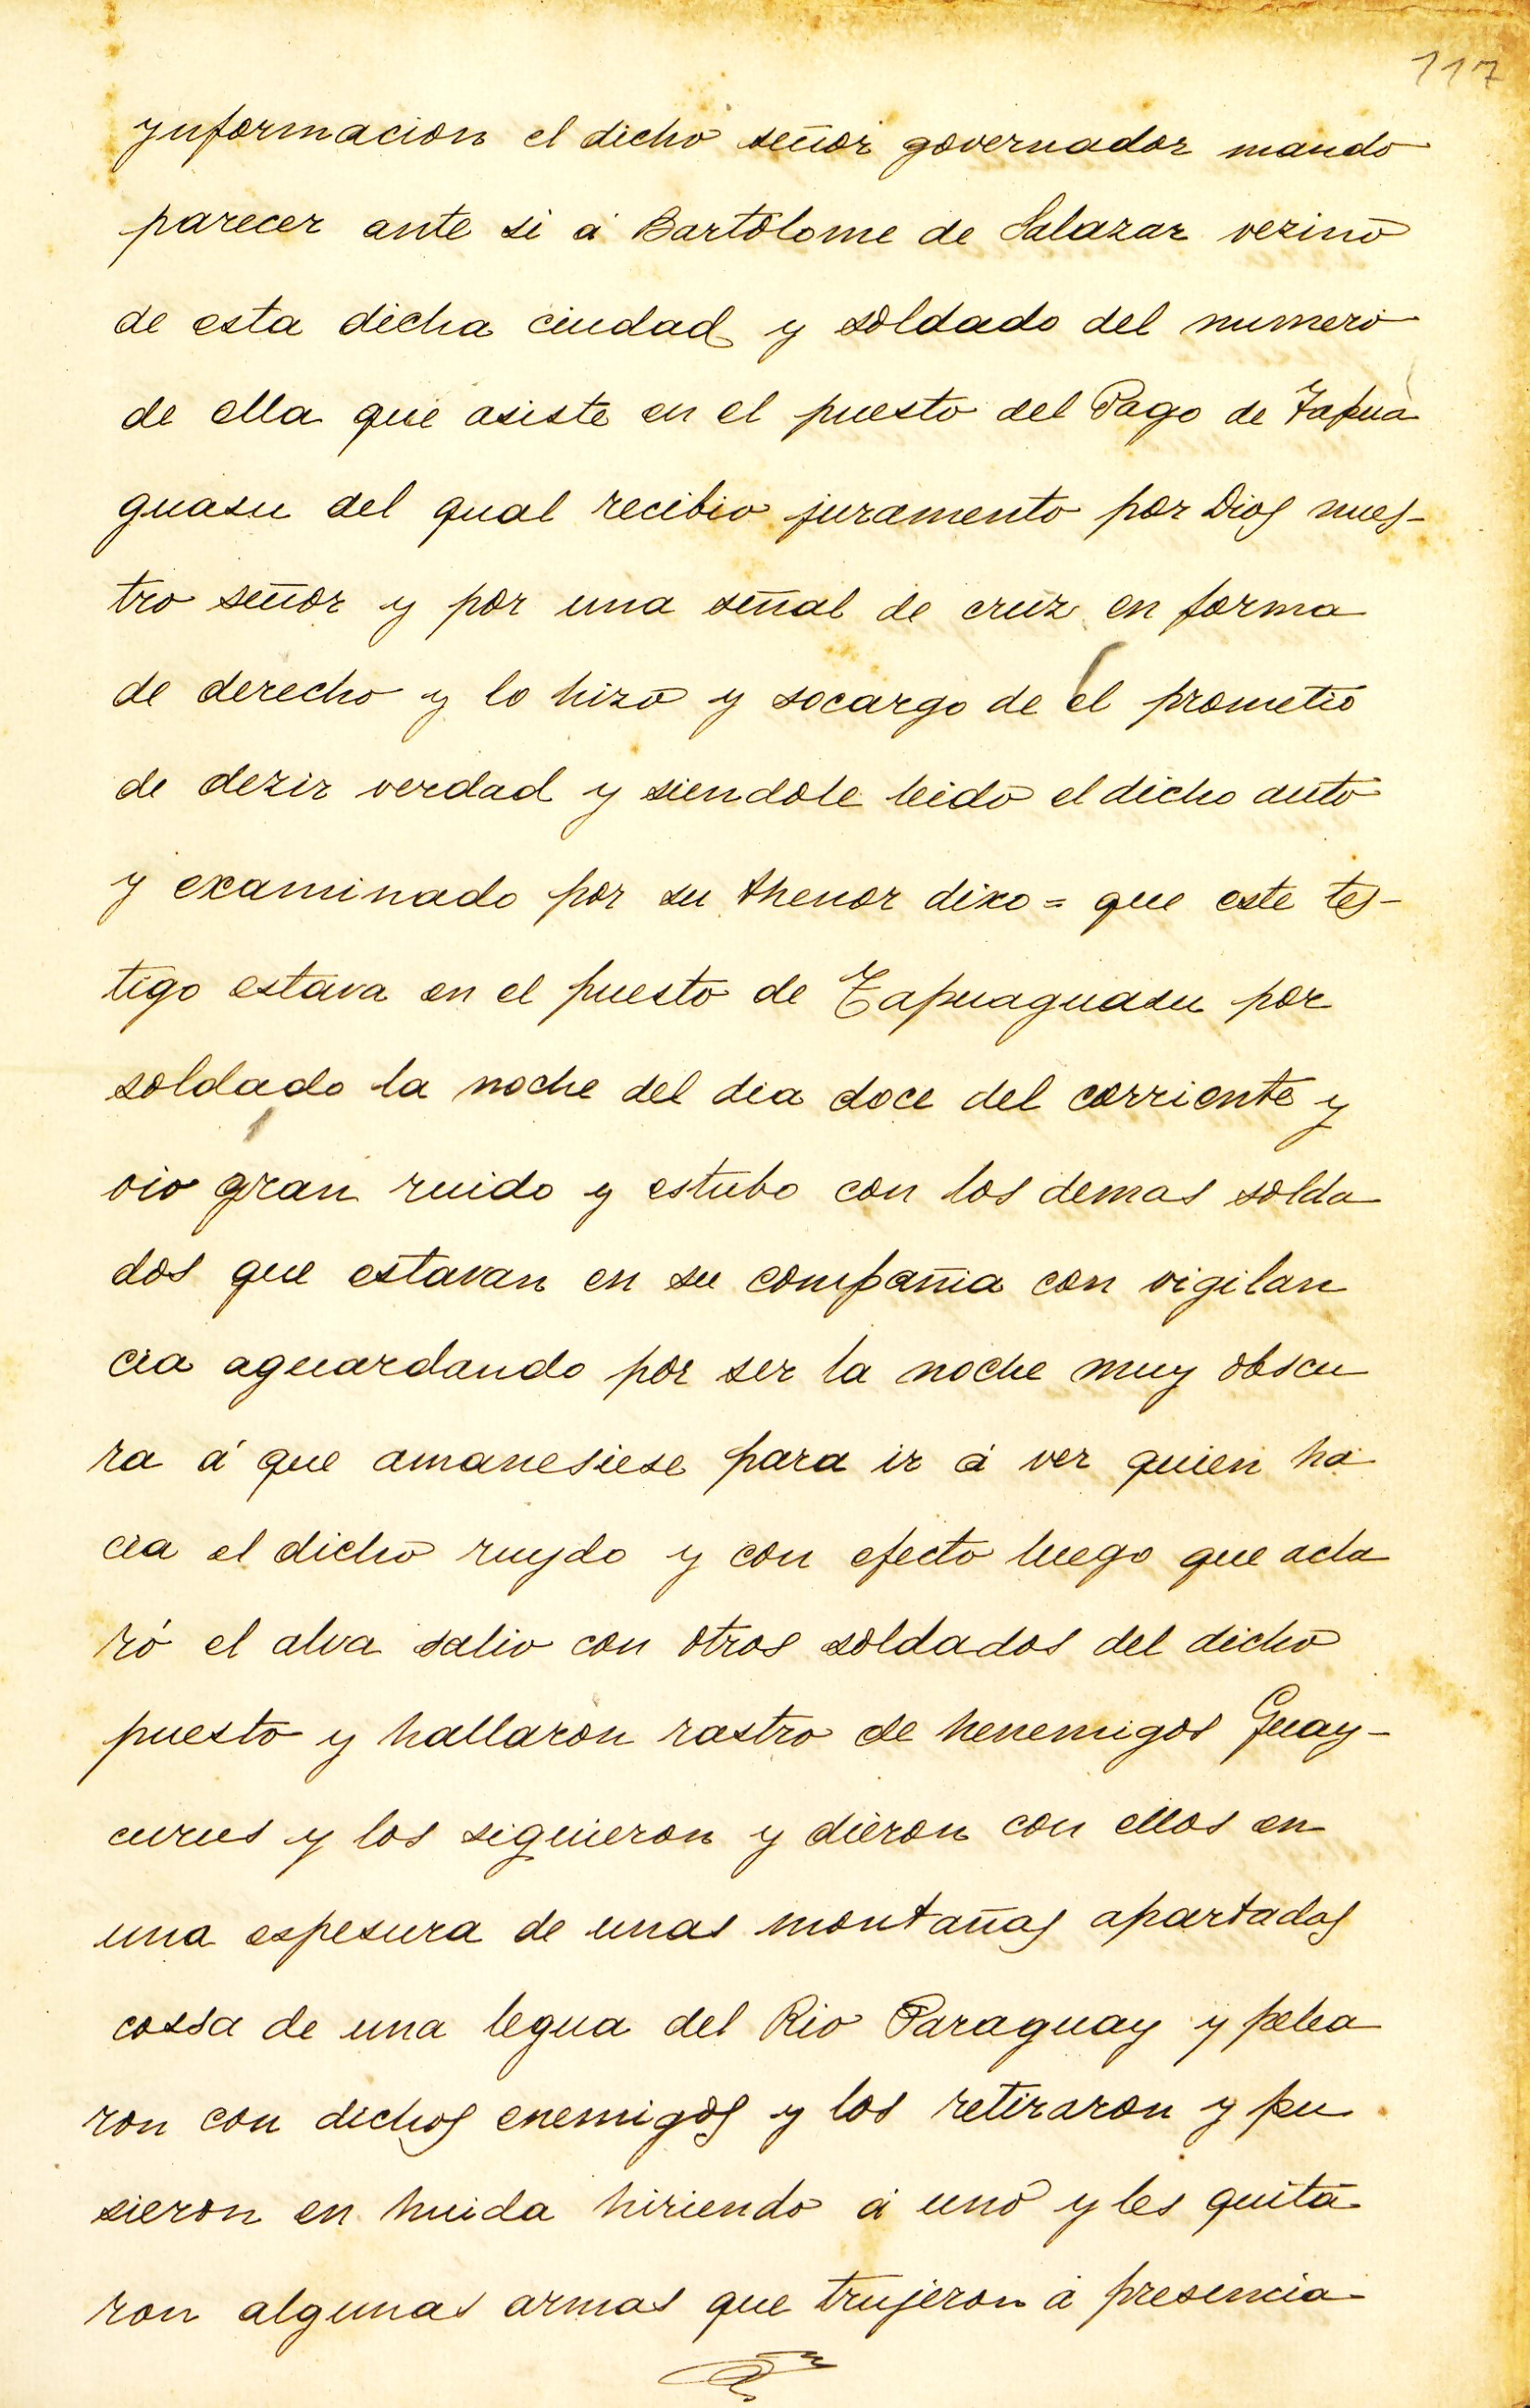 117
ynformacion el dicho señor governador mando
parecer ante si á Bartolome de Salazar vezino
de esta dicha ciudad y soldado del numero
de ella que asiste en el puesto del Pago de Tapua
guasu del qual recibio juramento por Dios nues-
tro señor y por una señal de cruz en forma
de derecho y lo hizo y socargo de el prometio
de dezir verdad y siendole leido el dicho auto
y examinado por su thenor dixo = que este tes-
tigo estava en el puesto de Tapuaguasu por
soldado la noche del dia doce del corriente y
oio gran ruido y estubo con los demas solda
dos que estavan en su compañia con vigilan
cia aguardando por ser la noche muy obscu
ra á que amanesiese para ir á ver quien ha
cia el dicho ruydo y con efecto luego que acla
ró el alva salio con otros soldados del dicho
puesto y hallaron rastro de henemigos Guay-
curus y los siguieron y dieron con ellos en
una espesura de unas montañas apartadas
cossa de una legua del Rio Paraguay y pelea
ron con dichos enemigos y los retiraron y pu
sieron en huida hiriendo á uno y les quita
ron algunas armas que trujeron á presencia